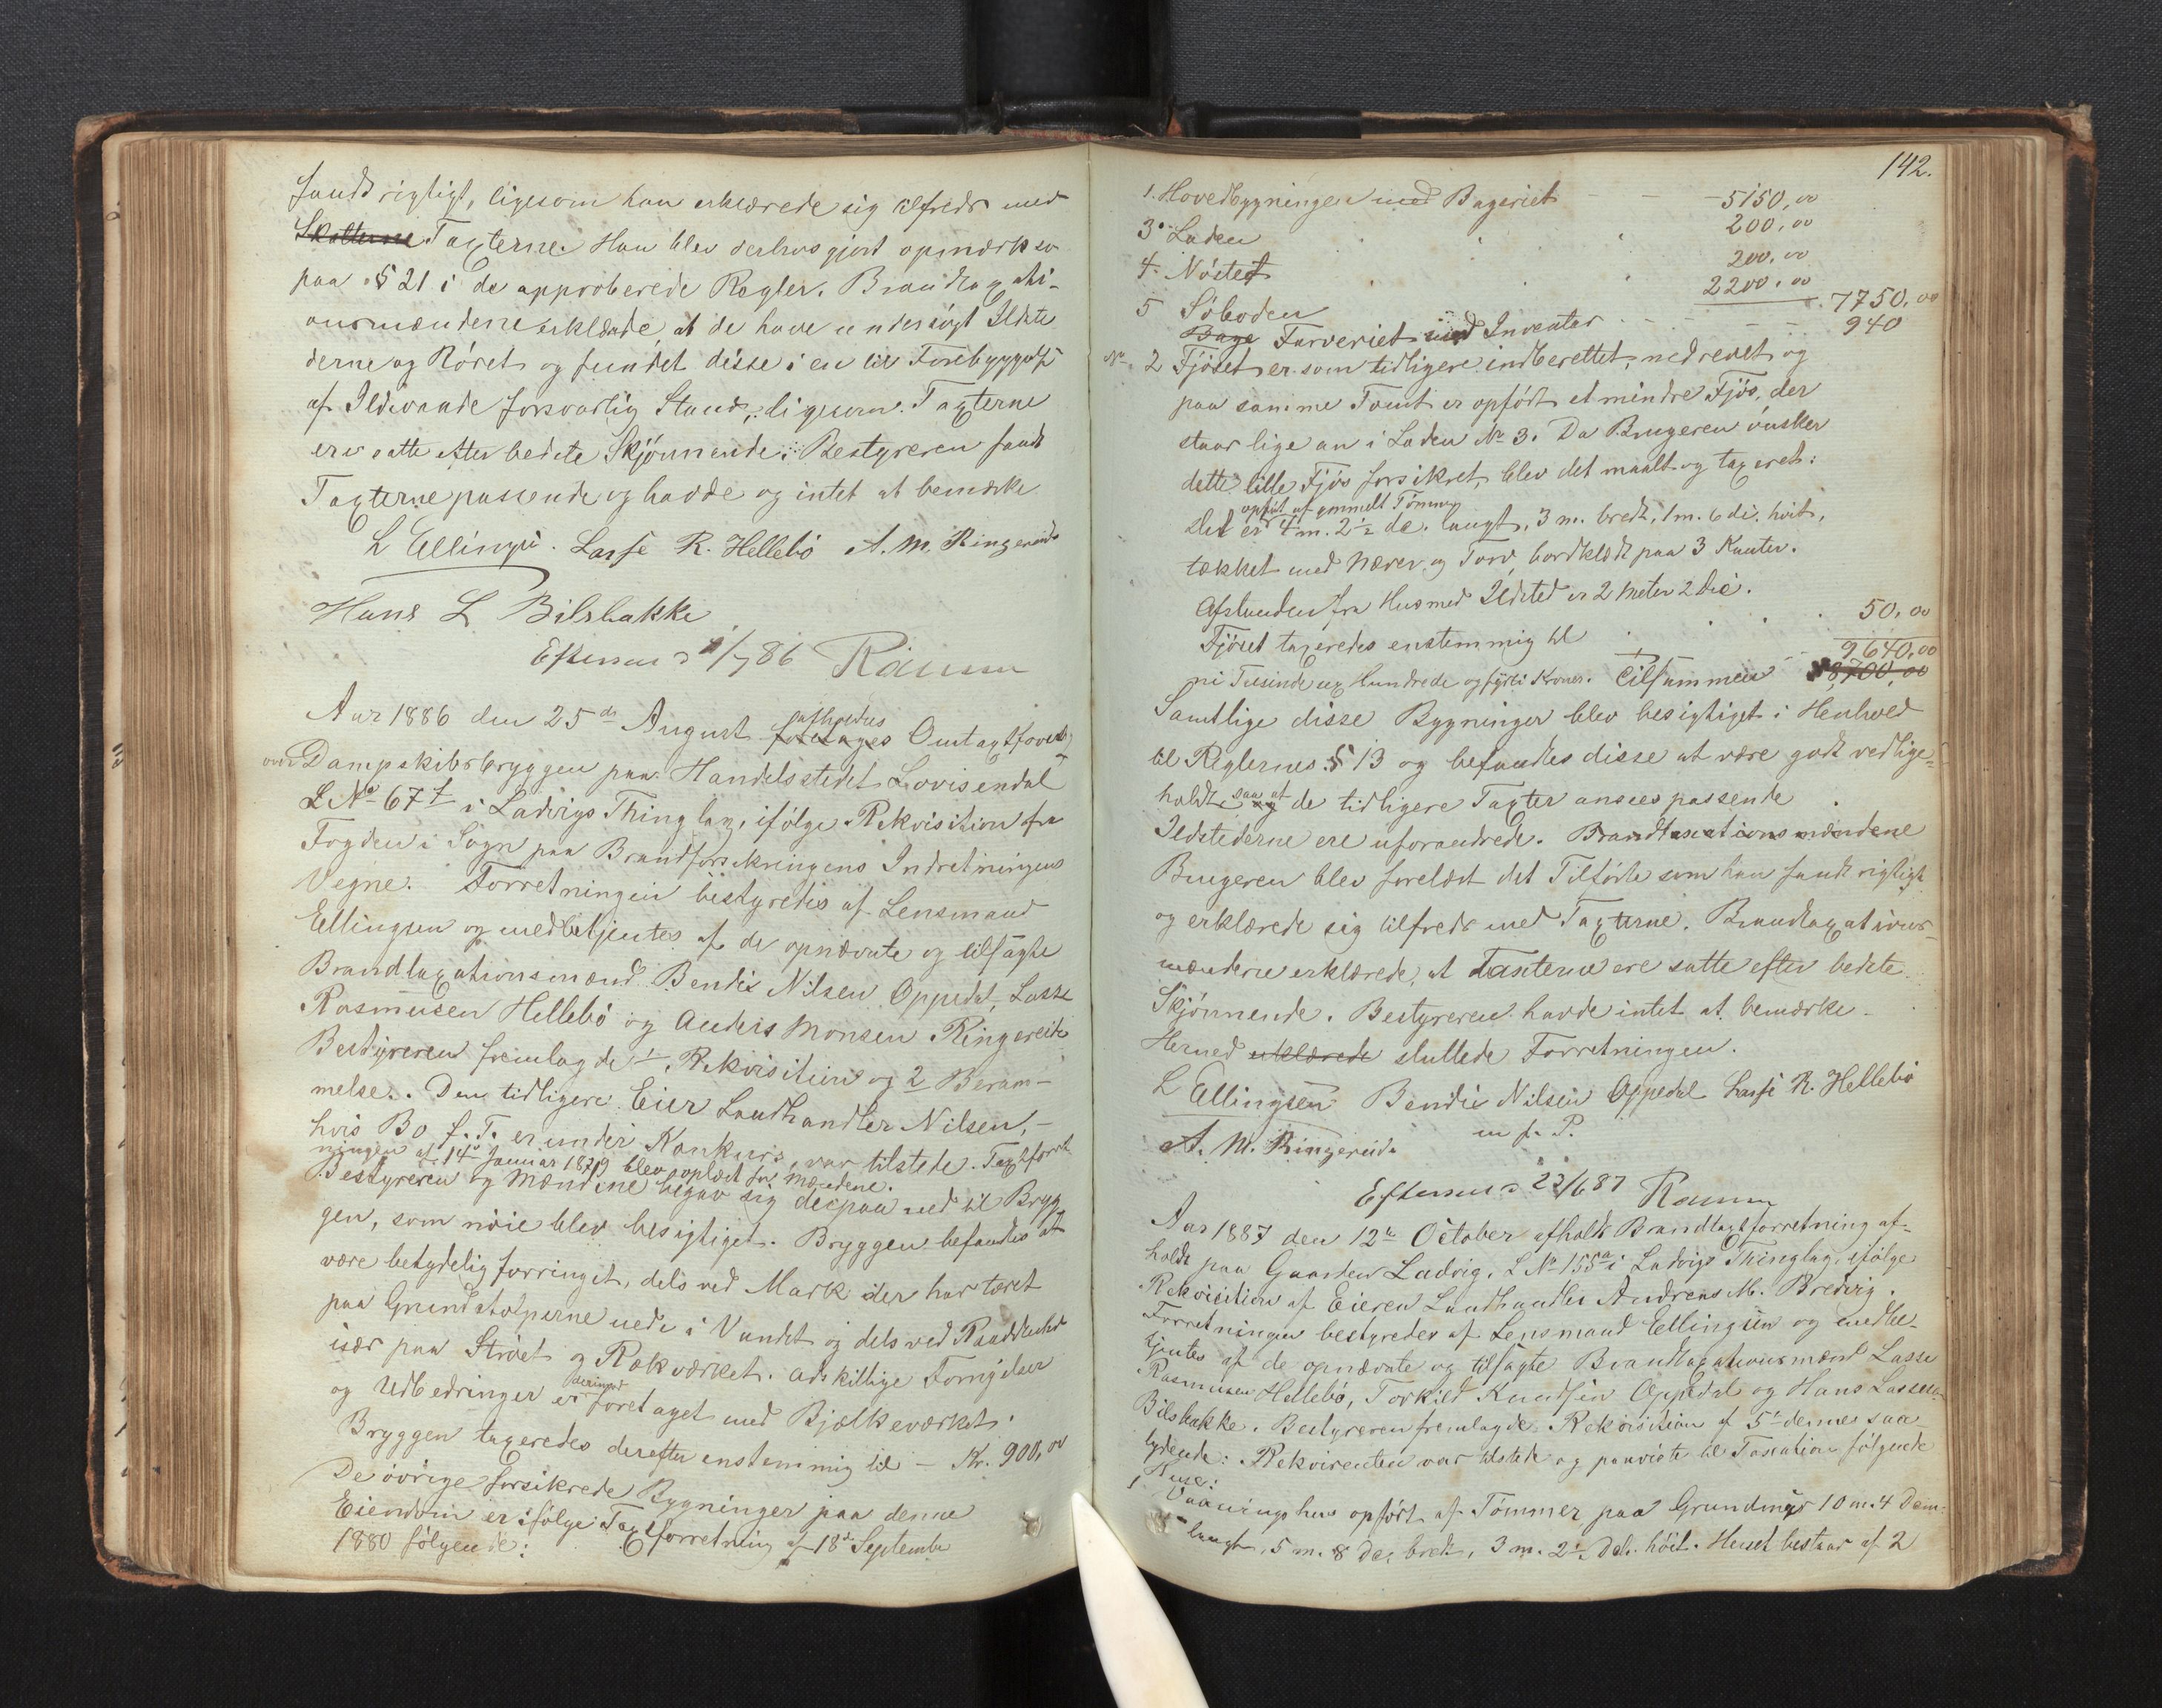 fandt rigtigt, ligesom han erklærede sig tilfreds med
Skatterne Taxterne. Han blev derhos gjort opmærkso
paa § 21 i de approberede Regler. Brandtaxati-
onsmændene erklærede, at de have undersøgt Ildste
derne og Røret og fundet disse i en til Forebyggelse
af Ildsvaade forsvarlig Stand, ligesom Taxterne
ere satte efter bedste Skjønnende. Bestyreren fandt
Taxterne passende og havde og intet at bemærke
L Ellingsen. Lasse R. Hellebö A. M. Ringereide
Hans L Bilsbakke
Eftersees /7 86
Aar 1886 den 25de August foretages afholdes Omtaxtforretn
over Dampskibsbryggen paa Handelsstedet Lovisendal
L No 67 f i Ladvigs Thinglag, ifølge Rekvisition fra
Fogden i Sogn paa Brandforsikringens Indretningens
Vegne. Forretningen bestyredes af Lensmand
Ellingsen og medbetjentes af de opnævnte og tilsagte
Brandtaxationsmænd Bendix Nilsen Oppedal, Lasse
Rasmusen Hellebö og Anders Monsen Ringereide
Bestyreren fremlagde 1 Rekvisition og 2 Beram-
melse. Den tidligere Eier Landhandler Nilsen, -
hvis Bo f. T. er under Konkurs, var tilstede. Taxtforret
ningen af 14de Januar 1879 blev oplæst for Mændene.
Bestyreren og Mændene begav sig derpaa ned til Bryg
gen, som nöie blev besigtiget. Bryggen befandtes at
være betydelig forringet, dels ved Mark der har tæret
paa Grundstolperne nede i Vandet og dels ved Raaddenhed
især paa Ströet og Rækværket. Adskillige Fornyelser
og Udbedringer er derimod foretaget med Bjælkeværket.
Bryggen taxeredes derefter enstemmig til - Kr. 900,00
De övrige forsikrede Bygninger paa denne
Eiendom er ifölge Taxtforretning af 18de September
1880 fölgende:
142.
1. Hovedbygningen med Bageriet - - 5150,00
3. Laden 200,00
4. Nöstet 200,00
5 Söboden 2200,00 7750,00
Bage Farveriet med Inventar - - - 940
No 2 Fjöset er som tidligere indberettet, nedrevet og
paa samme Tomt er opfört et mindre Fjös, der
staar lige an i Laden No 3. Da Brugeren önsker
dette lille Fjös forsikret, blev det maalt og taxeret:
opfört af gammelt Tömmer
Det er 4 m. 2½ de. langt, 3 m. bredt, 1 m. 6 de. höit,
tækket med Næver og Torv, bordklædt paa 3 Kanter.
Afstanden fra Hus med Ildsted er 2 Meter 2 Dec.
Fjöset taxeredes enstemmig til 50,00
9640,00
ni Tusinde sex Hundrede og fyrti Kroner. Tilsammen 8,700,00
Samtlige disse Bygninger blev besigtiget i Henhold
til Reglernes § 13 og befandtes disse at være godt vedlige-
holdt, og saa at de tidligere Taxter ansees passende
Ildstederne ere uforandrede. Brandtaxationsmændene
Brugeren blev forelæst det Tilförte som han fandt rigtigt
og erklærede sig tilfreds med Taxterne. Brandtaxations-
mændene erklærede, at Taxterne ere satte efter bedste
Skjönnende. Bestyreren havde intet at bemærke.
Hermed erklærede sluttede Forretningen.
L Ellingsen Bendix Nilsen Oppedal Lasse R. Hellebö
m. f. P.
A. M. Ringereide
Eftersees 22/6 87
Aar 1887 den 12te October afholdt Brandtaxtforretning af-
holdt paa Gaarden Ladvig, L No 155a i Ladvigs Thinglag, ifölge
Rekvisition af Eieren Landhandler Andreas M. Bredvig.
Forretningen bestyredes af Lensmand Ellingsen og medbe-
tjentes af de opnævnte og tilsagte Brandtaxationsmænd Lasse
Rasmusen Hellebö, Torkild Knudsen Oppedal og Hans Lassen
Bilsbakke. Bestyreren fremlagde Rekvisition af 5te dennes saa-
lydende: Rekvirenten var tilstede og paaviste til Taxation fölgende
Huse:
1 Vaaningshus opfört af Tömmer paa Grundmur 10 m. 4 Dcm.
langt, 5 m. 8 de. bredt, 3 m. 2½ Dcb. höit. Huset bestaar af 2